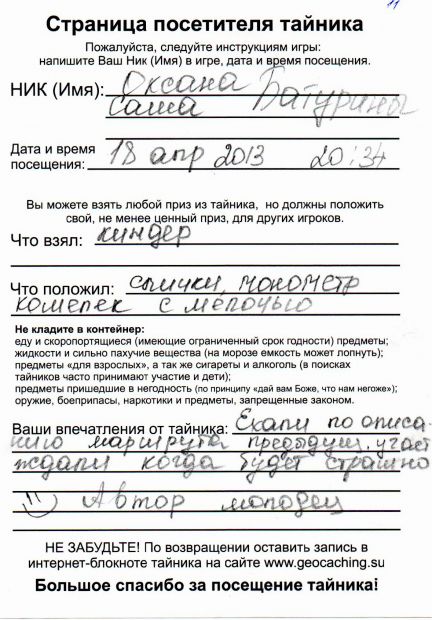 11
Страница посетителя тайника
Пожалуйста, следуйте инструкциям игры:
напишите Ваш Ник (Имя) в игре, дата и время посещения.
НИК (Имя): Оксана Батурины
Саша
Дата и время
посещения: 18 апр 2013 20:34
Вы можете взять любой приз из тайника, но должны положить
свой, не менее ценный приз, для других игроков.
Что взял: киндер
Что положил: спички, монометр
кошелек с мелочью
Не кладите в контейнер:
еду и скоропортящиеся (имеющие ограниченный срок годности) предметы;
жидкости и сильно пахучие вещества (на морозе емкость может лопнуть);
предметы «для взрослых», а так же сигареты и алкоголь (в поисках
тайников часто принимают участие и дети);
предметы пришедшие в негодность (по принципу «дай вам Боже, что нам негоже»);
оружие, боеприпасы, наркотики и предметы, запрещенные законом.
Ваши впечатления от тайника: Ехали по описа-
нию маршрута предыдущ. участ
ждали когда будет страшно
Автор молодец
НЕ ЗАБУДЬТЕ! По возвращении оставить запись в
интернет-блокноте тайника на сайте www.geocaching.su
Большое спасибо за посещение тайника!